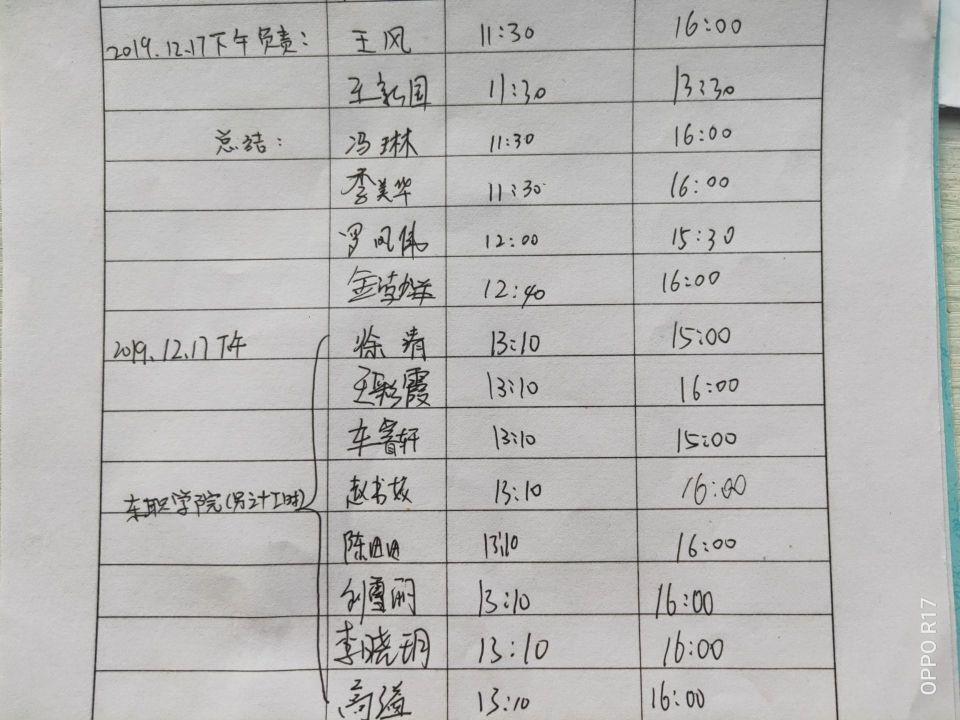 2019.12.17下午负责： 王风 11:30 16:00
王新国 11:30 13:30
总结： 冯琳 11:30 16:00
李美华 11:30 16:00
罗风伟 12:00 15:30
金 12:40 16:00
2019.12.17下午 徐清 13:10 15:00
王彩霞 13:10 16:00
车睿轩 13:10 15:00
赵书 13:10 16:00
车职学院(另计工时)
陈 13:10 16:00
刘雪丽 13:10 16:00
李晓玥 13:10 16:00
高 13:10 16:00
OPPO R17